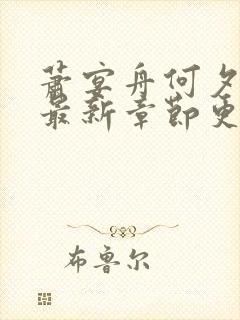 萧宴舟何夕
最新章节更
布鲁尔